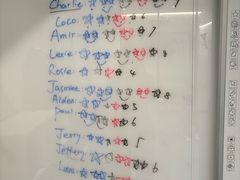 Charlie: 7
Coco: 6
Amir: 7
Lexie: 8
Rosie: 4
Jasmine: 8
Aiden: 5
Paul: 6
Jerry: 5
Jeffery:
Liam: 6